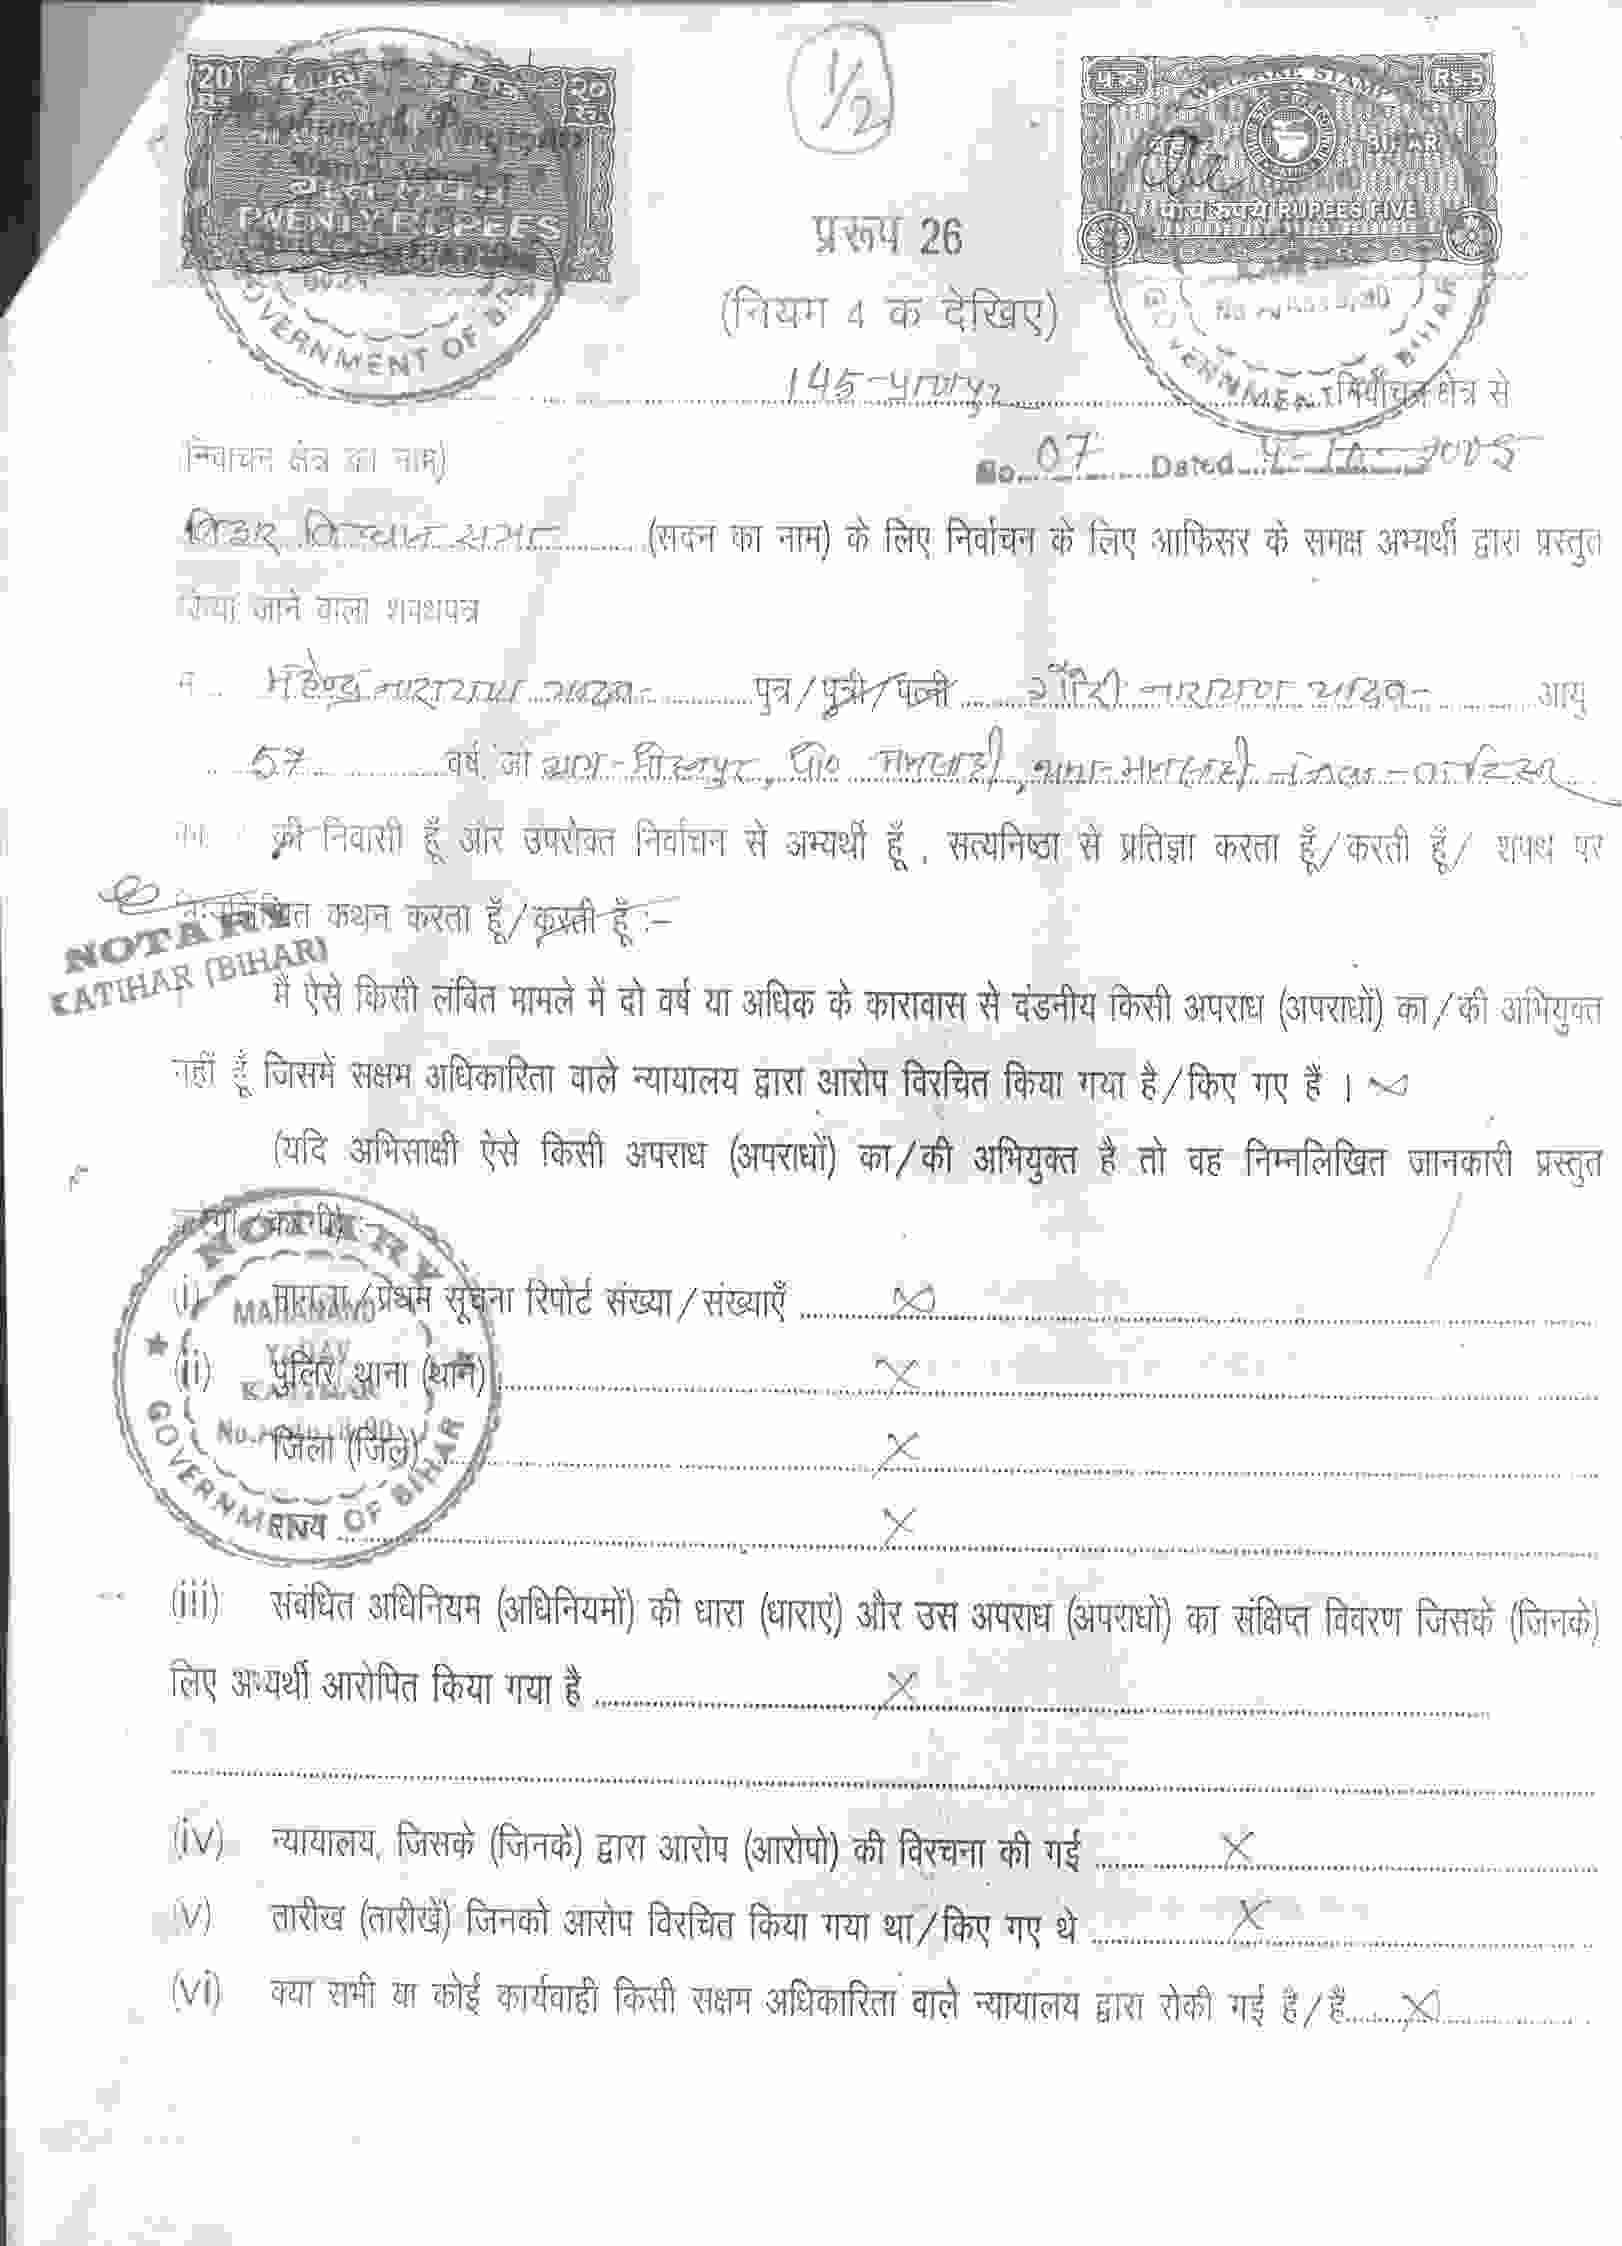 1/2
20 Rs
२० रु.
TWENTY RUPEES
GOVERNMENT OF
Rs 5
WELFARE STAMP
BIHAR
पांच रूपये RUPEES FIVE
GOVERNMENT OF BIHAR
प्ररूप 26
(नियम 4 क देखिए)
145-प्राणपुर निर्वाचन क्षेत्र से
(निर्वाचन क्षेत्र का नाम)
No. 07 Dated
बिहार विधान सभा (सदन का नाम) के लिए निर्वाचन के लिए आफिसर के समक्ष अभ्यर्थी द्वारा प्रस्तुत
किया जाने वाला शपथपत्र
मैं महेन्द्र नारायण यादव पुत्र/पुत्री/पत्नी गौरी नारायण यादव आयु
57 वर्ष जो ग्राम- पो० मनसाही, थाना-मनसाही जिला-कटिहार
का की निवासी हूँ और उपरोक्त निर्वाचन से अभ्यर्थी हूँ, सत्यनिष्ठा से प्रतिज्ञा करता हूँ/करती हूँ/ शपथ पर
निम्नलिखित कथन करता हूँ/करती हूँ :–
NOTARY
KATIHAR (BIHAR)
मैं ऐसे किसी लंबित मामले में दो वर्ष या अधिक के कारावास से दंडनीय किसी अपराध (अपराधों) का/की अभियुक्त
नहीं हूँ जिसमें सक्षम अधिकारिता वाले न्यायालय द्वारा आरोप विरचित किया गया है/किए गए हैं ।
(यदि अभिसाक्षी ऐसे किसी अपराध (अपराधों) का/की अभियुक्त है तो वह निम्नलिखित जानकारी प्रस्तुत
NOTARY
MAHANAND
YADAV
KATIHAR
GOVERNMENT OF BIHAR
(i) मामला/प्रथम सूचना रिपोर्ट संख्या/संख्याएँ X
(ii) पुलिस थाना (थाने) X
जिला (जिले) X
राज्य X
(iii) संबंधित अधिनियम (अधिनियमों) की धारा (धाराएं) और उस अपराध (अपराधों) का संक्षिप्त विवरण जिसके (जिनके)
लिए अभ्यर्थी आरोपित किया गया है X
(iv) न्यायालय, जिसके (जिनके) द्वारा आरोप (आरोपो) की विरचना की गई X
(v) तारीख (तारीखें) जिनको आरोप विरचित किया गया था/किए गए थे X
(vi) क्या सभी या कोई कार्यवाही किसी सक्षम अधिकारिता वाले न्यायालय द्वारा रोकी गई है/हैं X